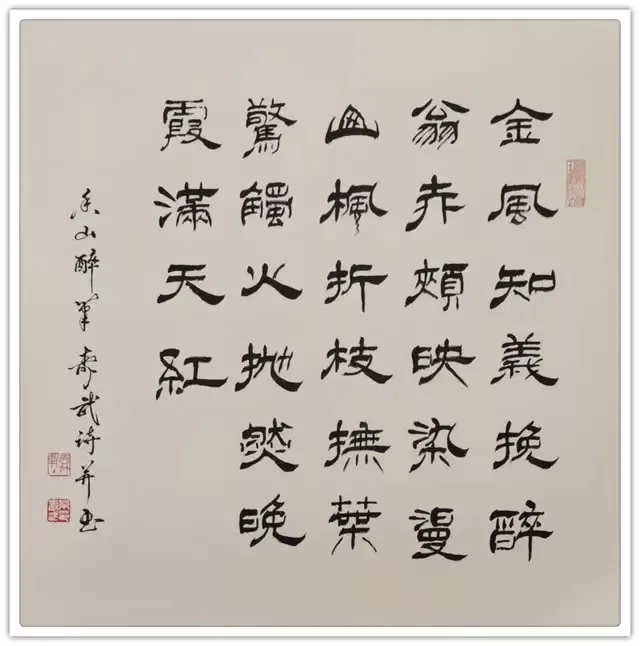 金風知義挽醉
翁赤頰映染漫
山楓折枝撫葉
驚觸火拋然晚
霞滿天紅
香山醉筆 武诗并书